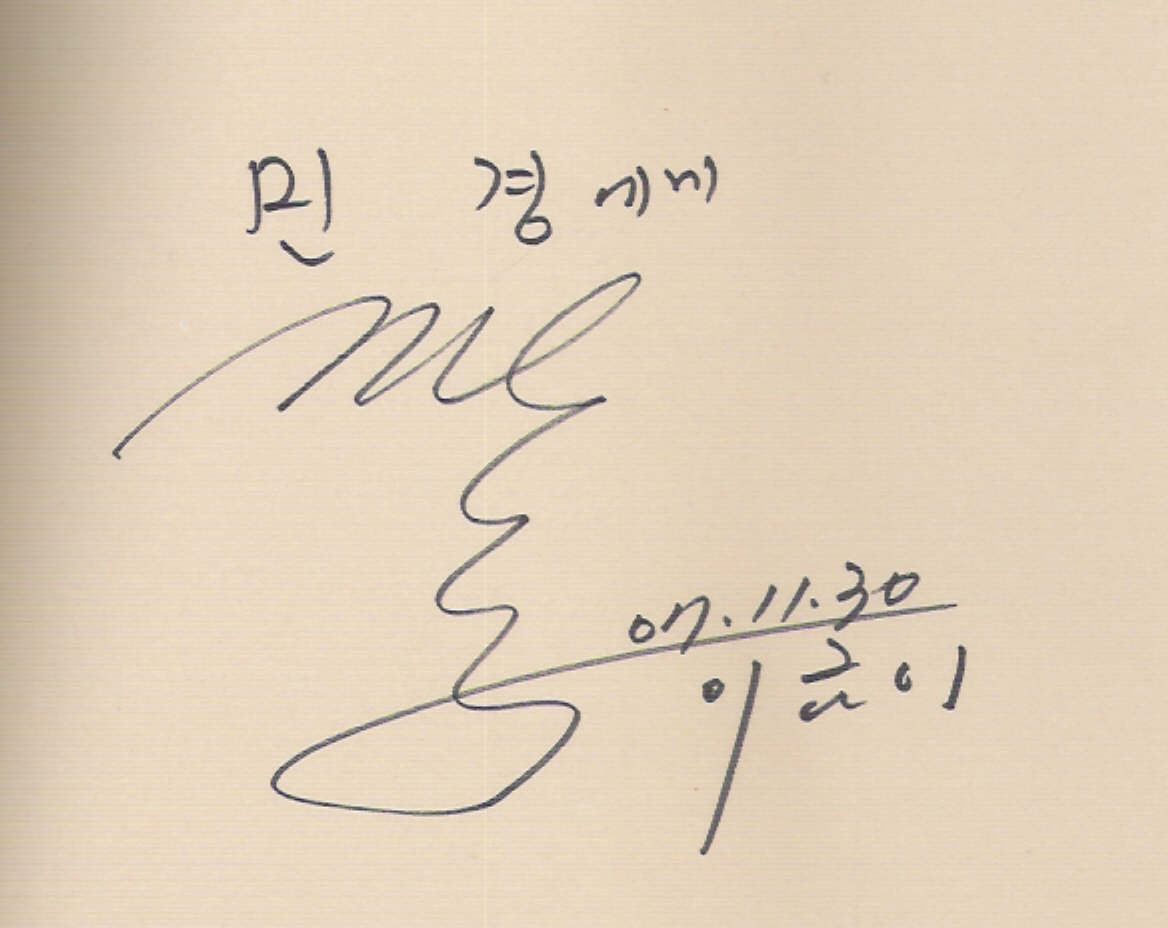 민 경에게
07.11.30
이금이